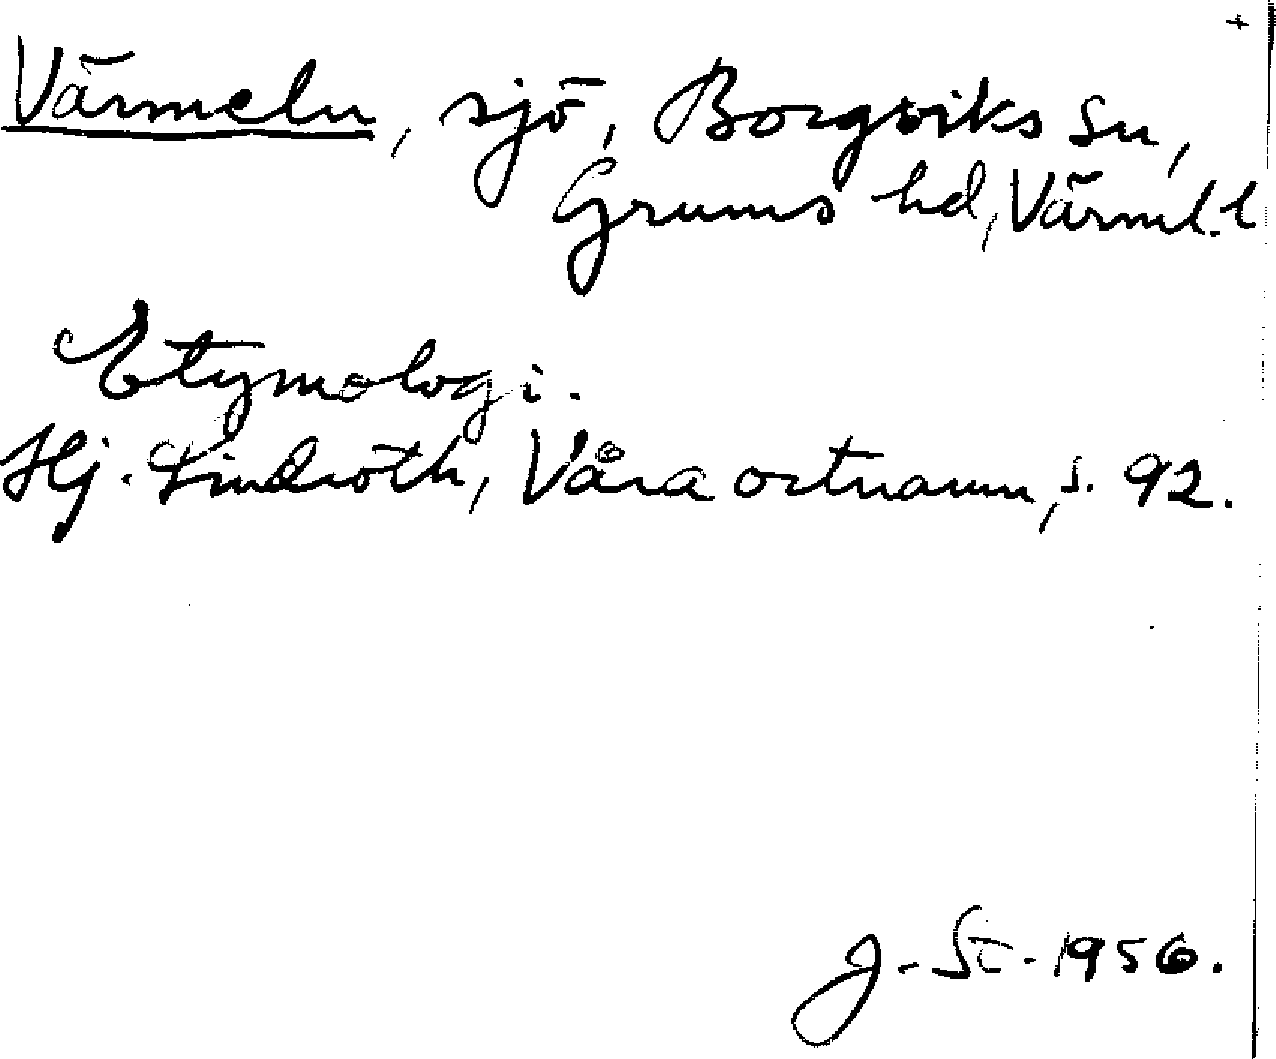 +
Värmeln, sjö, Borgviks sn,
Grums hd, Värml. l
Etymologi.
Hj. Lindroth, Våra ortnamn, s. 92.
J. St. 1956.